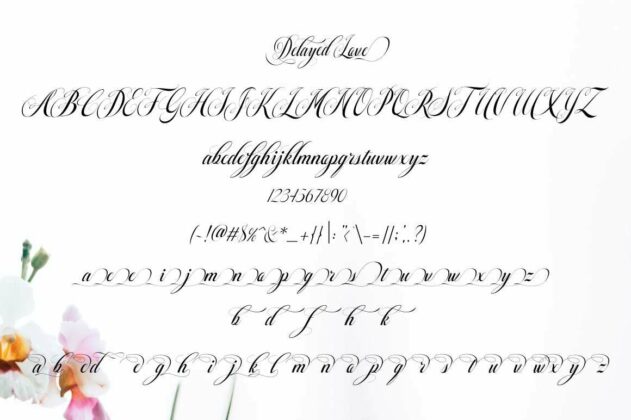 Delayed Love
ABCDEFGHIJKLMNOPQRSTUVWXYZ
abcdefghijklmnopqrstuvwxyz
1234567890
(~!@#$%^&*_+{}|:"<`\-=[];',.?)
a c e i j m n o p q r s t u v w x y z
b d f h k
a b c d e g h i j k l m n o p q r s t u v w x y z